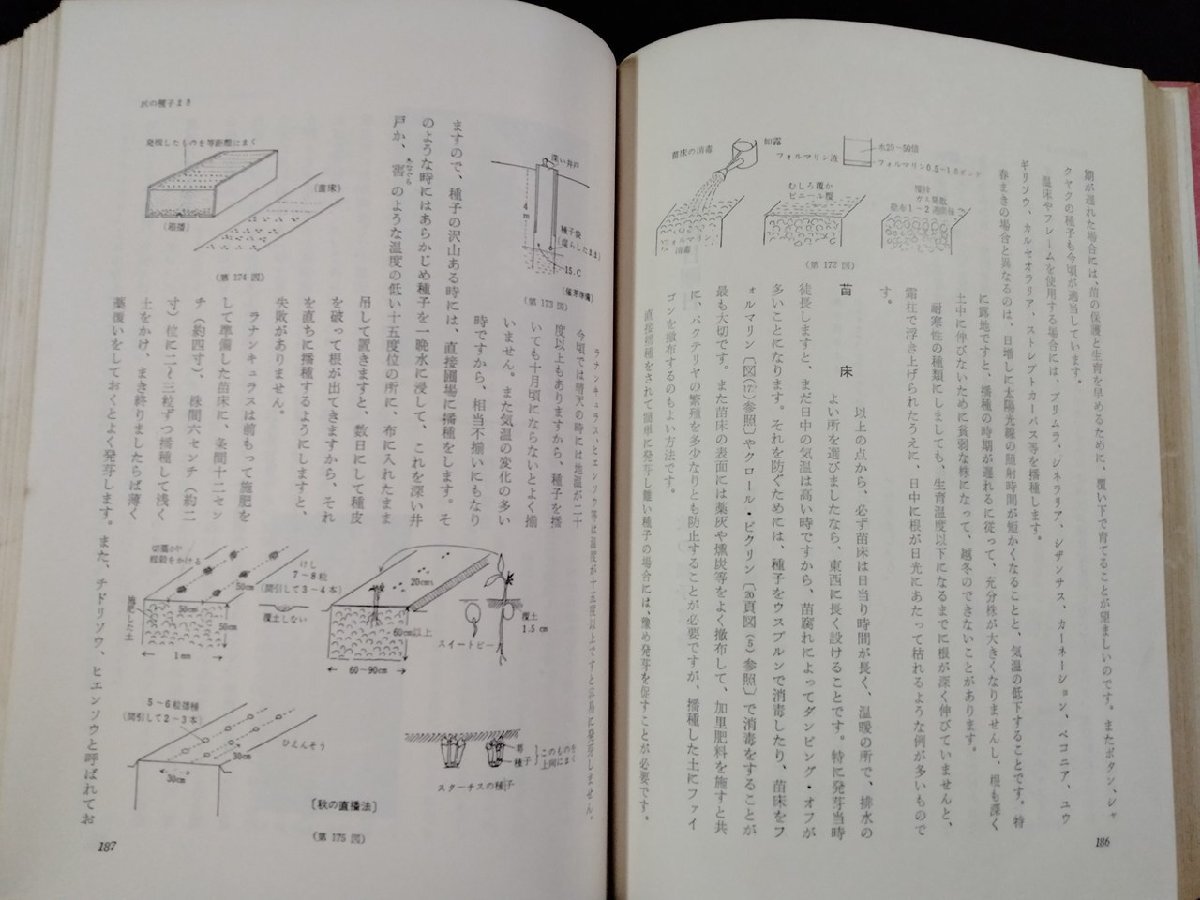 期が遅れた場合には、苗の保護と生育を早めるために、覆い下で育てることが望ましいのです。またボタン、シャ
クヤクの種子も今頃が適当しています。
温床やフレームを使用する場合には、プリムラ、シネラリア、シザンサス、カーネーション、ベコニア、ユウ
ギリソウ、カルセオラリア、ストレプトカーパス等を播種します。
春まきの場合と異なるのは、日増しに太陽光線の照射時間が短かくなることと、気温の低下することです。特
に露地ですと、播種の時期が遅れるに従って、充分株が大きくなりませんし、根も深く
土中に伸びないために貧弱な株になって、越冬のできないことがあります。
耐寒性の種類にしましても、生育温度以下になるまでに根が深く伸びていませんと、
霜柱で浮き上げられたうえに、日中に根が日光にあたって枯れるような例が多いもので
す。
苗床
以上の点から、必ず苗床は日当り時間が長く、温暖の所で、排水の
よい所を選びましたなら、東西に長く設けることです。特に発芽当時
徒長しますと、まだ日中の気温は高い時ですから、苗腐れによってダンピング・オフが
多いことになります。それを防ぐためには、種子をウスプルンで消毒したり、苗床をフ
ォルマリン〔図(17)参照〕やクロール・ピクリン〔20頁図(5)参照〕で消毒をすることが
最も大切です。また苗床の表面には藁灰や燻炭等をよく撒布して、加里肥料を施すと共
に、バクテリヤの繁殖を多少なりとも防止することが必要ですが、播種した土にファイ
ゴンを撒布するのもよい方法です。
直接播種をされて簡単に発芽し難い種子の場合には、予め発芽を促すことが必要です。
苗床の消毒
如露
フォルマリン液
水25~50倍
フォルマリン0.5~1.0ポンド
フォルマリン
消毒
むしろ覆か
ビニール覆
ガス発散
放布1~2週間後
(第172図)
186
秋の種子まき
ラナンキュラス、ヒエンソウ等は温度が十五度以上ですと容易に発芽しません。
今頃では晴天の時には地温が二十
度以上もありますから、種子を播
いても十月頃にならないとよく揃
いません。また気温の変化の多い
時ですから、相当不揃いにもなり
ますので、種子の沢山ある時には、直接圃場に播種をします。そ
のような時にはあらかじめ種子を一晩水に浸して、これを深い井
戸か、窖のような温度の低い十五度位の所に、布に入れたまま
吊して置きますと、数日にして種皮
を破って根が出てきますから、それ
を直ちに播種するようにしますと、
失敗がありません。
ラナンキュラスは前もって施肥を
して準備した苗床に、条間十二セン
チ(約四寸)、株間六センチ(約二
寸)位に二~三粒ずつ播種して浅く
土をかけ、まき終りましたらば薄く
藁覆いをしておくとよく発芽します。また、チドリソウ、ヒエンソウと呼ばれてお
深い井戸
4m
種子袋
(湿らしたまま)
15.C
〔催芽準備〕
(第173図)
発根したものを等距離にまく
(直床)
(箱播)
(第174図)
切藁かや
籾殻をかける
けし
7~8粒
(間引して3~4本)
50cm
50cm
50cm
施肥した土
1mm
覆土しない
20cm
60cm以上
60~90cm
スイートピー
覆土
1.5cm
5~6粒播種
(間引して2~3本)
ひえんそう
30cm
30cm
萼
種子
このものを
上向にまく
スターチスの種子
〔秋の直播法〕
(第175図)
187